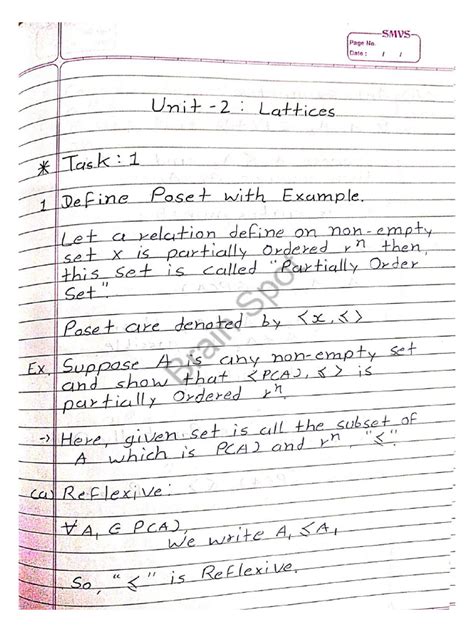 SMVS
Page No.
Date : / /
Unit - 2 : Lattices
* Task : 1
1 Define Poset with Example.
Let a relation define on non-empty
set x is partially Ordered rⁿ then,
this set is called "Partially Order
Set".
Poset are denoted by <x, ≤>
Ex. Suppose A is any non-empty set
and show that <P(A), ≤> is
partially Ordered rⁿ.
→ Here, given set is all the subset of
A which is P(A) and rⁿ, "≤".
(a) Reflexive:
∀ A₁ ∈ P(A),
We write A₁ ≤ A₁
So, "≤" is Reflexive.
Brain Spot